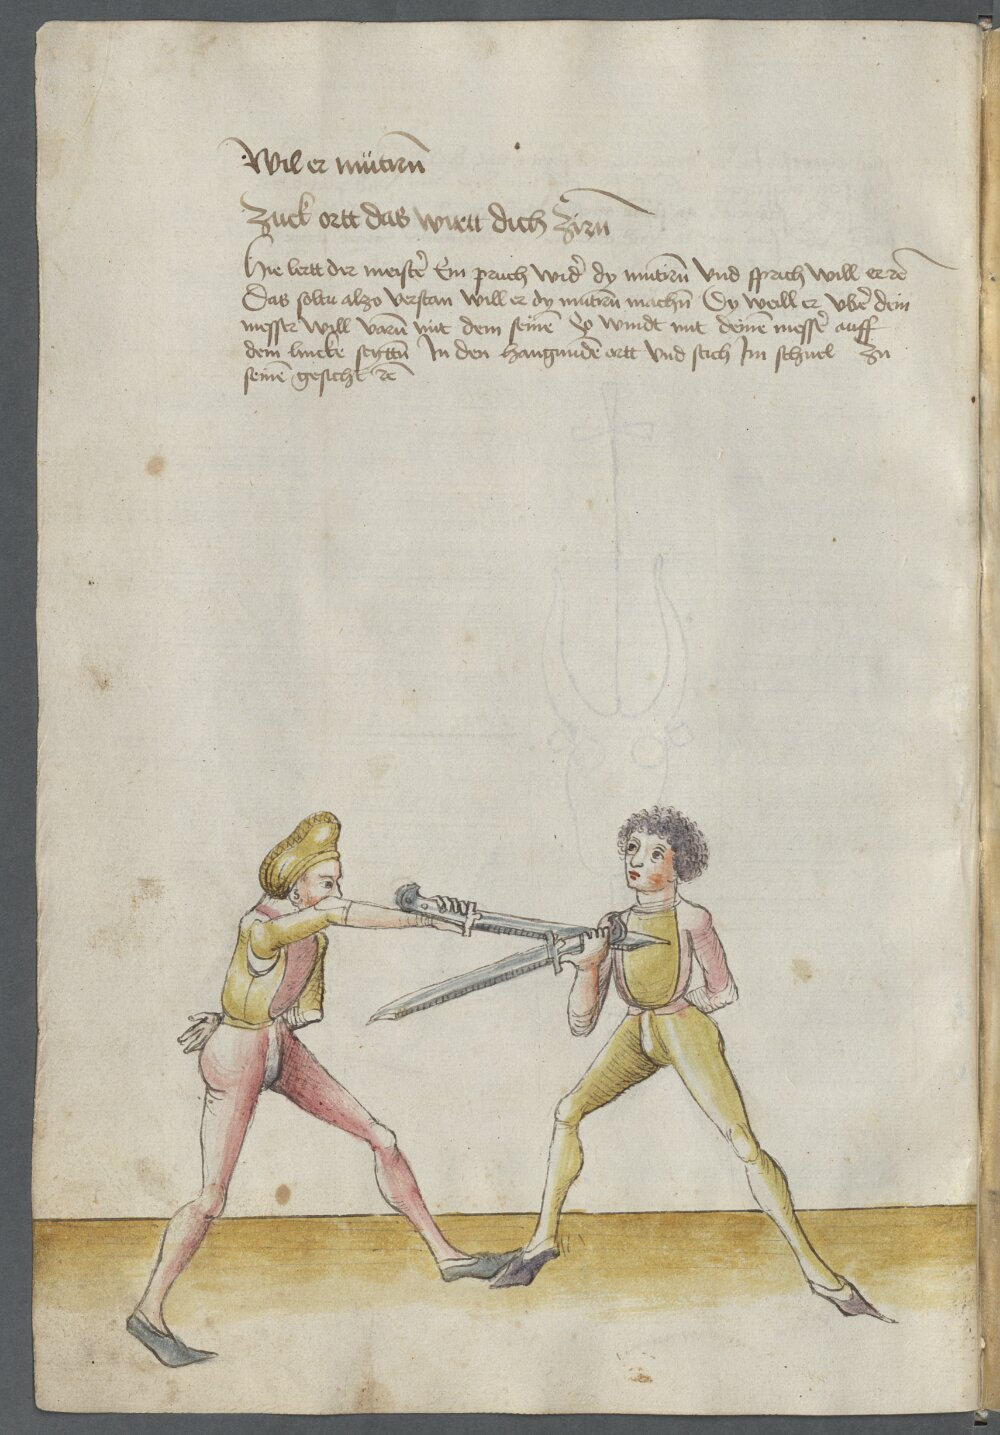 Wil er mütirn̄
Zuck ortt das wirtt dich Zirn̄
Hie lertt der meiste᷑ Ein pruch wid᷑ dy mutirn̄ vnd sprich will er rc̄
Das soltu alzo verstan will er dy mutirn̄ machn̄ Dy weill er vbe᷑ dein
messer will varn̄ mit dem seinē So windt mit deinē messe᷑ auff
dein lincke seyttn̄ In den hangundē ortt vnd stich Im schnel zu
seinē gesicht rc̄